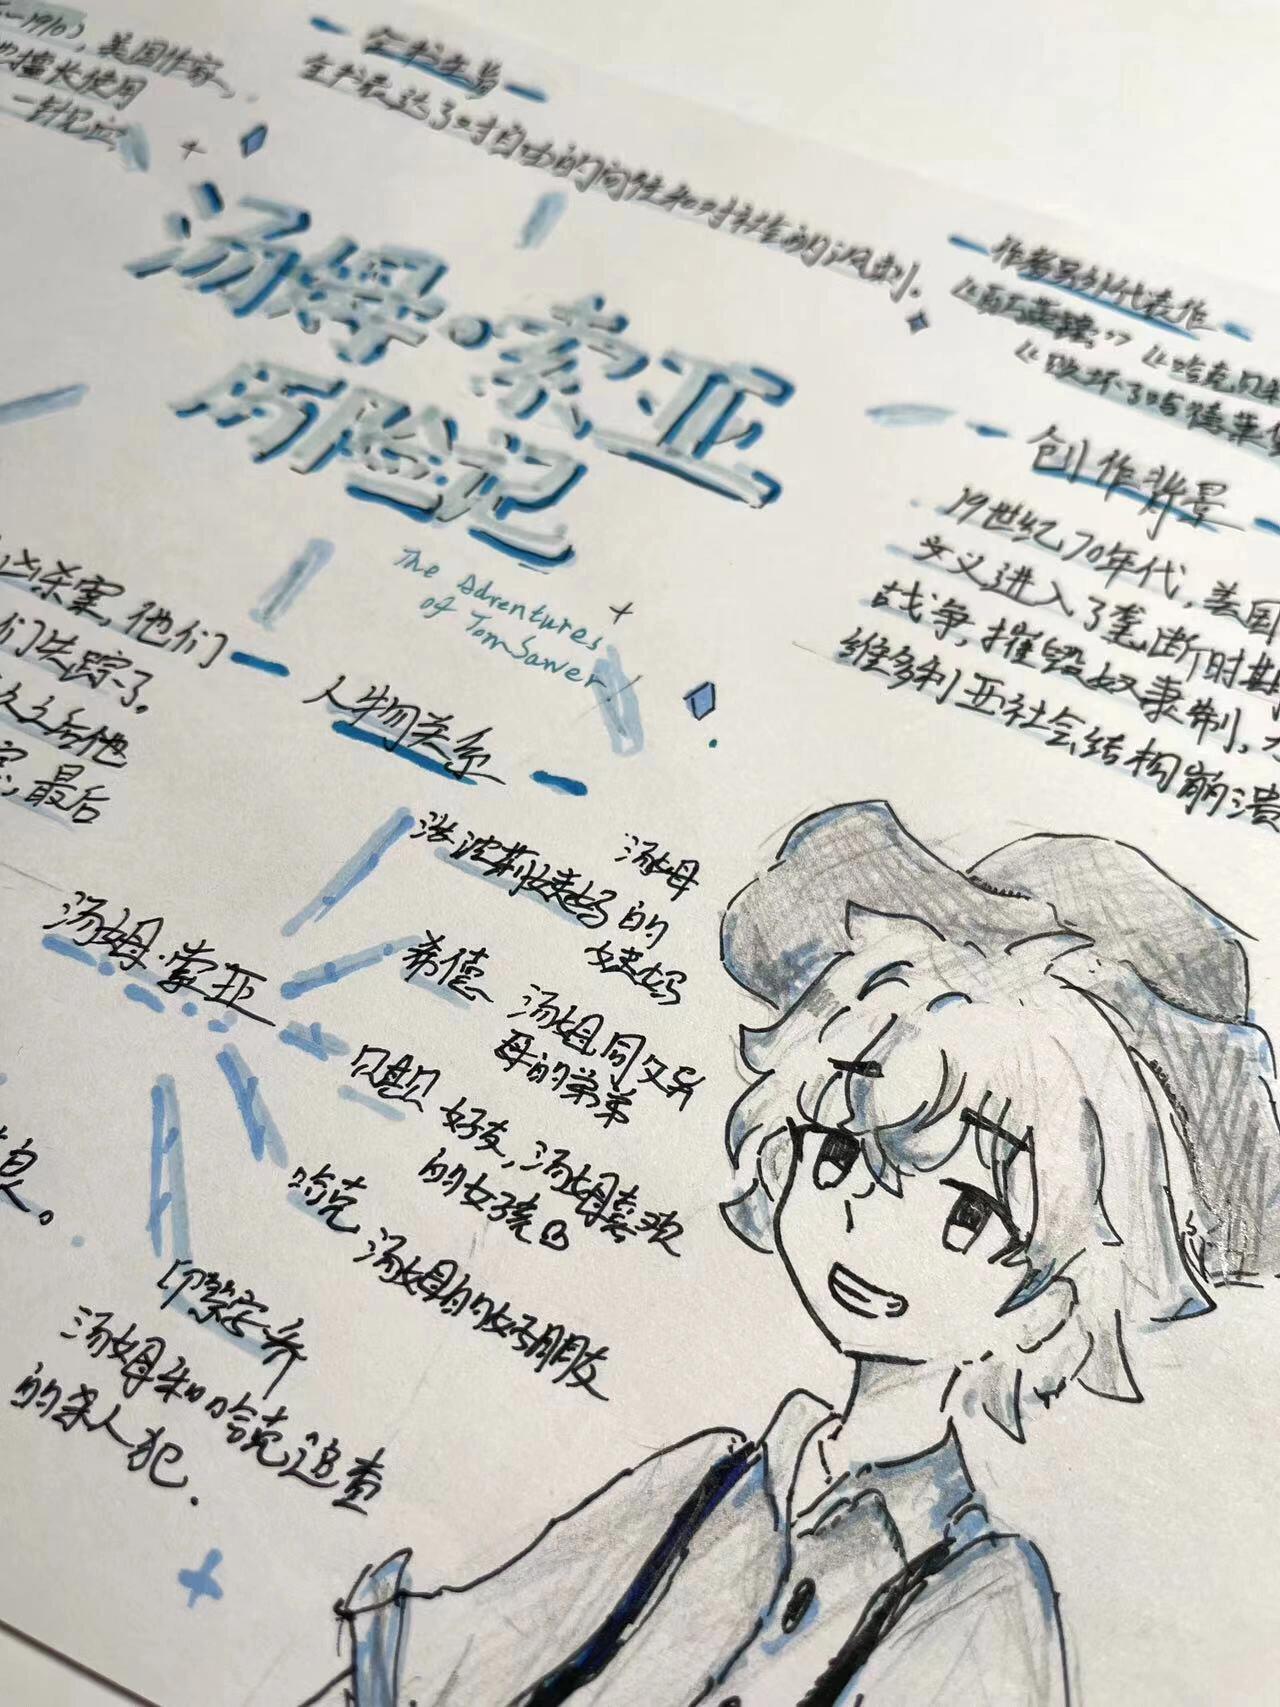 1910),美国作家,
擅长使用
一针见血
全书主旨
全书表达了对自由的向往和对社会的讽刺.
作者另外代表作
《百万英镑》 《哈克贝利
《败坏了哈德莱堡
汤姆·索亚
历险记
The Adventures
of Tom Sawer
创作背景
19世纪70年代,美国
主义进入了垄断时期
战争,摧毁奴隶制,
维多利亚社会结构崩溃
凶杀案,他们
们失踪了。
久之后他
最后
人物关系
汤姆·索亚
波莉姨妈 汤姆的姨妈
希德 汤姆同父异母的弟弟
好友,汤姆喜欢的女孩
哈克 汤姆的好朋友
印第安·乔
汤姆和哈克追查
的杀人犯.
息。